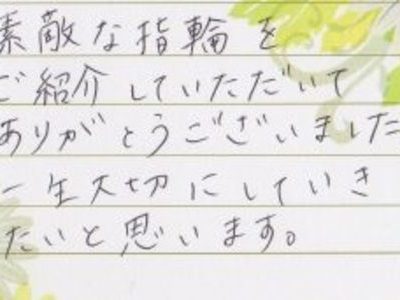 素敵な指輪を
ご紹介していただいて
ありがとうございました
一生大切にしていき
たいと思います。